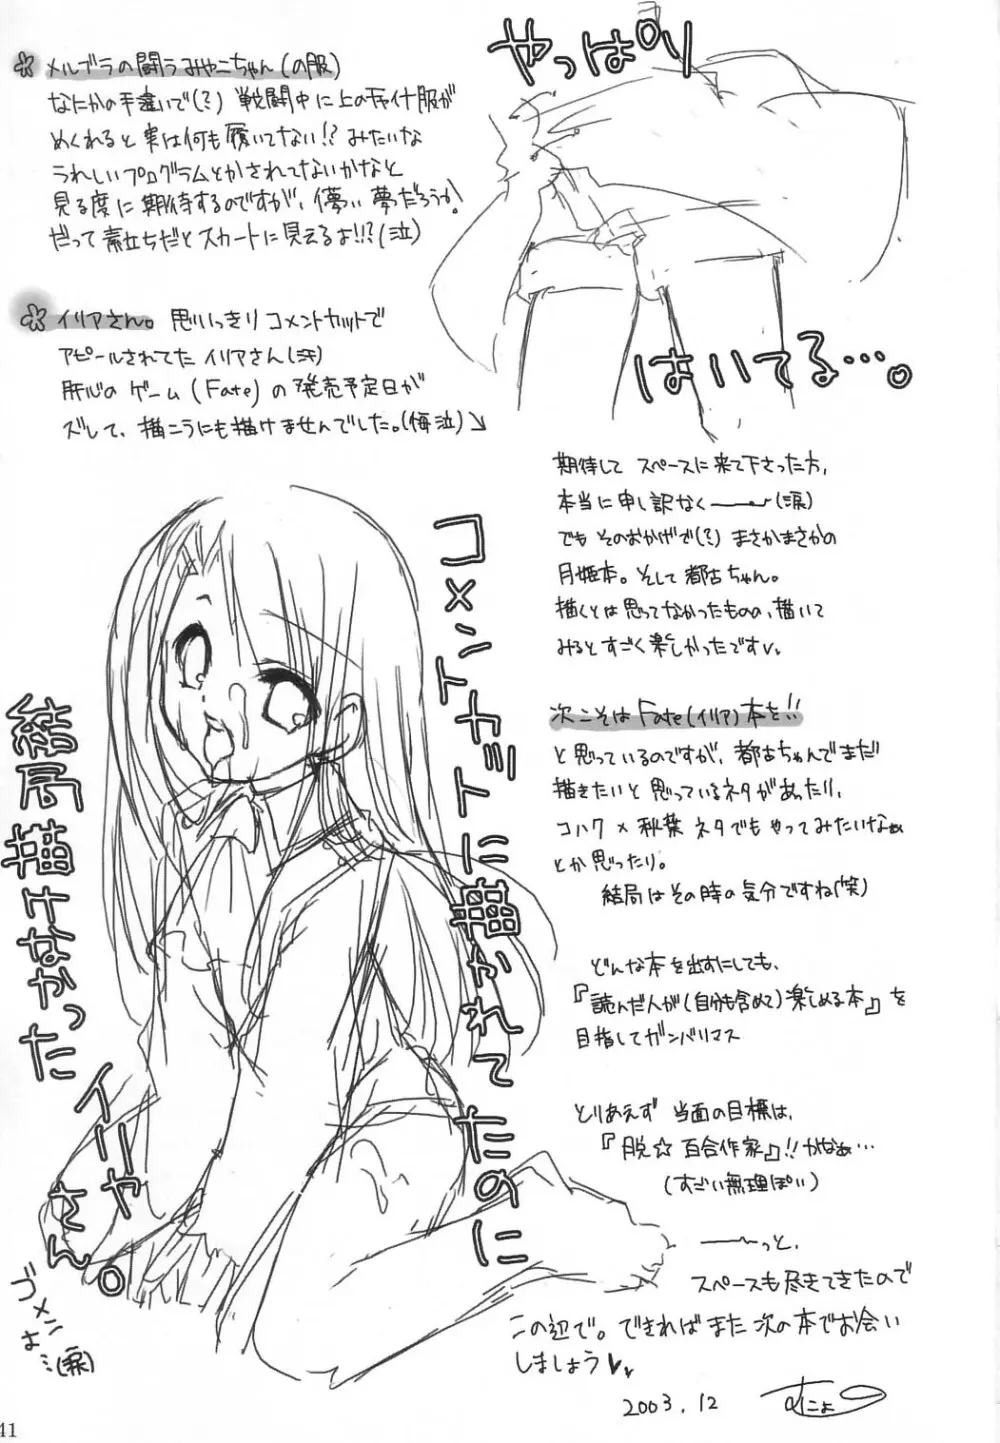 メルブラの闘うみやこちゃん(の服)
なにかの手違いで(?) 戦闘中に上のチャイナ服が
めくれると実は何も履いてない!? みたいな
うれしいプログラムとかされてないかなと
見る度に期待するのですが、儚い夢だろうか!
だって素立ちだとスカートに見えるよ!!?(泣)
やっぱり
はいてる…。
イリアさん。思いっきりコメントカットで
アピールされてたイリアさん(汗)
肝心のゲーム(Fate)の発売予定日が
ズレて、描こうにも描けませんでした。(悔泣)
期待してスペースに来て下さった方、
本当に申し訳なく(涙)
でもそのおかげで(?)まさかまさかの
月姫本。そして都古ちゃん。
描くとは思ってなかったものの、描いて
みるとすごく楽しかったです
次こそはFate(イリア)本を!!
と思っているのですが、都古ちゃんでまだ
描きたいと思っているネタがあったり、
コハク×秋葉ネタでもやってみたいなぁ
とか思ったり。
結局はその時の気分ですね(笑)
どんな本を出すにしても、
『読んだ人が(自分も含めて)楽しめる本』を
目指してガンバリマス
とりあえず当面の目標は、
『脱☆百合作家』!!かなぁ…
(すごい無理ぽい)
っと、
スペースも尽きてきたので
この辺で。できればまた次の本でお会い
しましょう
2003.12
コメントカットに描かれてたのに
結局描けなかった
イリヤさん。
ゴメンよ…(涙)
41